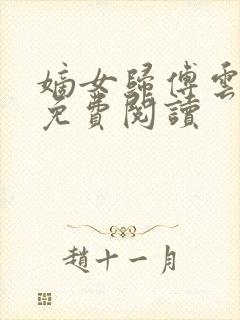 嫡女歸傅雲
免費閱讀
趙十一月